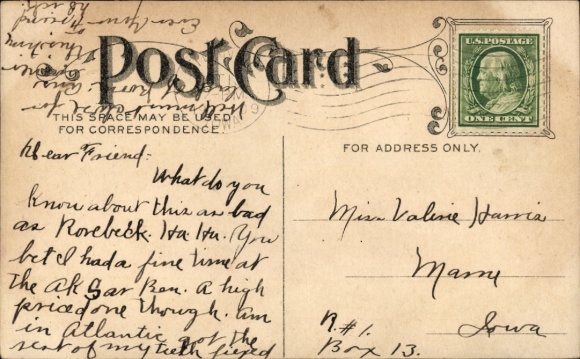 Post Card
THIS SPACE MAY BE USED
FOR CORRESPONDENCE
FOR ADDRESS ONLY.
U.S. POSTAGE
ONE CENT
Dear Friend:
What do you
know about this as bad
as Rosebeck. Ha Ha. You
bet I had a fine time at
the Ak Sar Ben. A high
priced one though. am
in Atlantic got the
rest of my teeth fixed
Miss Valerie Harris
Marne
Iowa
R.#1.
Box 13.
Ever your Friend